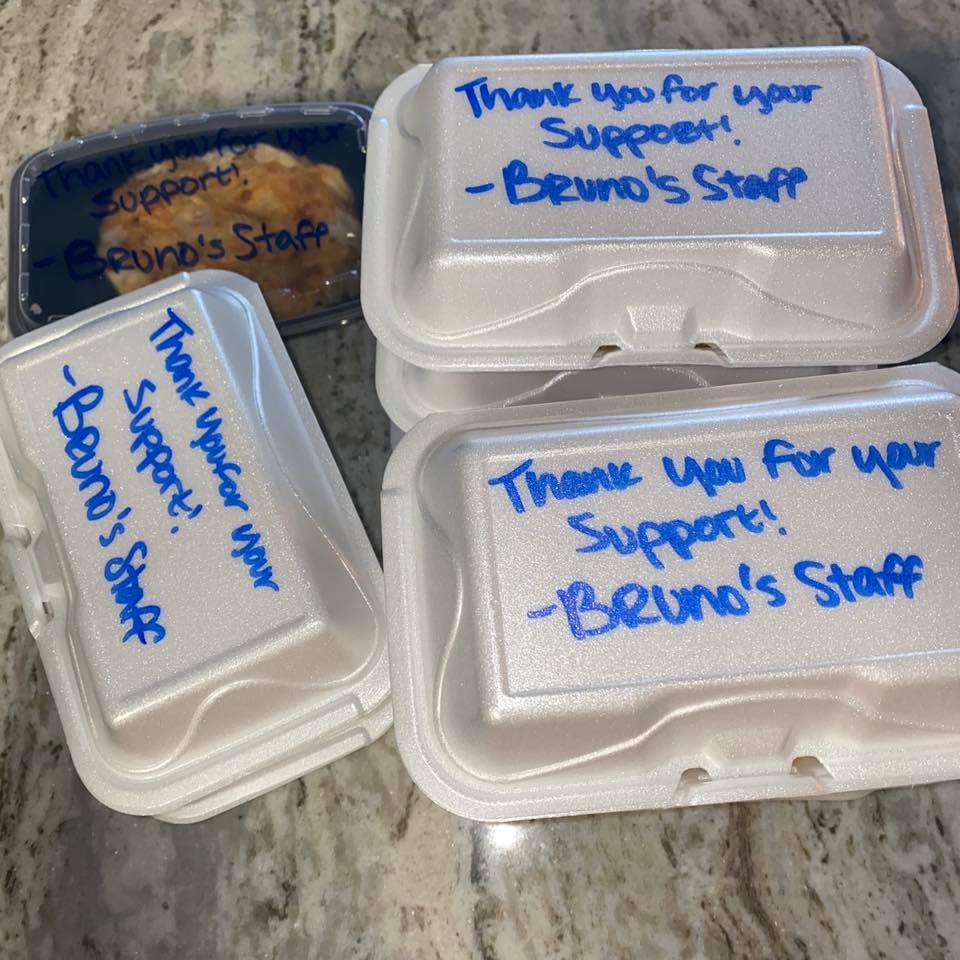 Thank you for your
Support!
- Bruno's Staff
Thank you for your
Support!
- Bruno's Staff
Thank you for your
Support!
- Bruno's Staff
Thank you for your
Support!
- Bruno's Staff